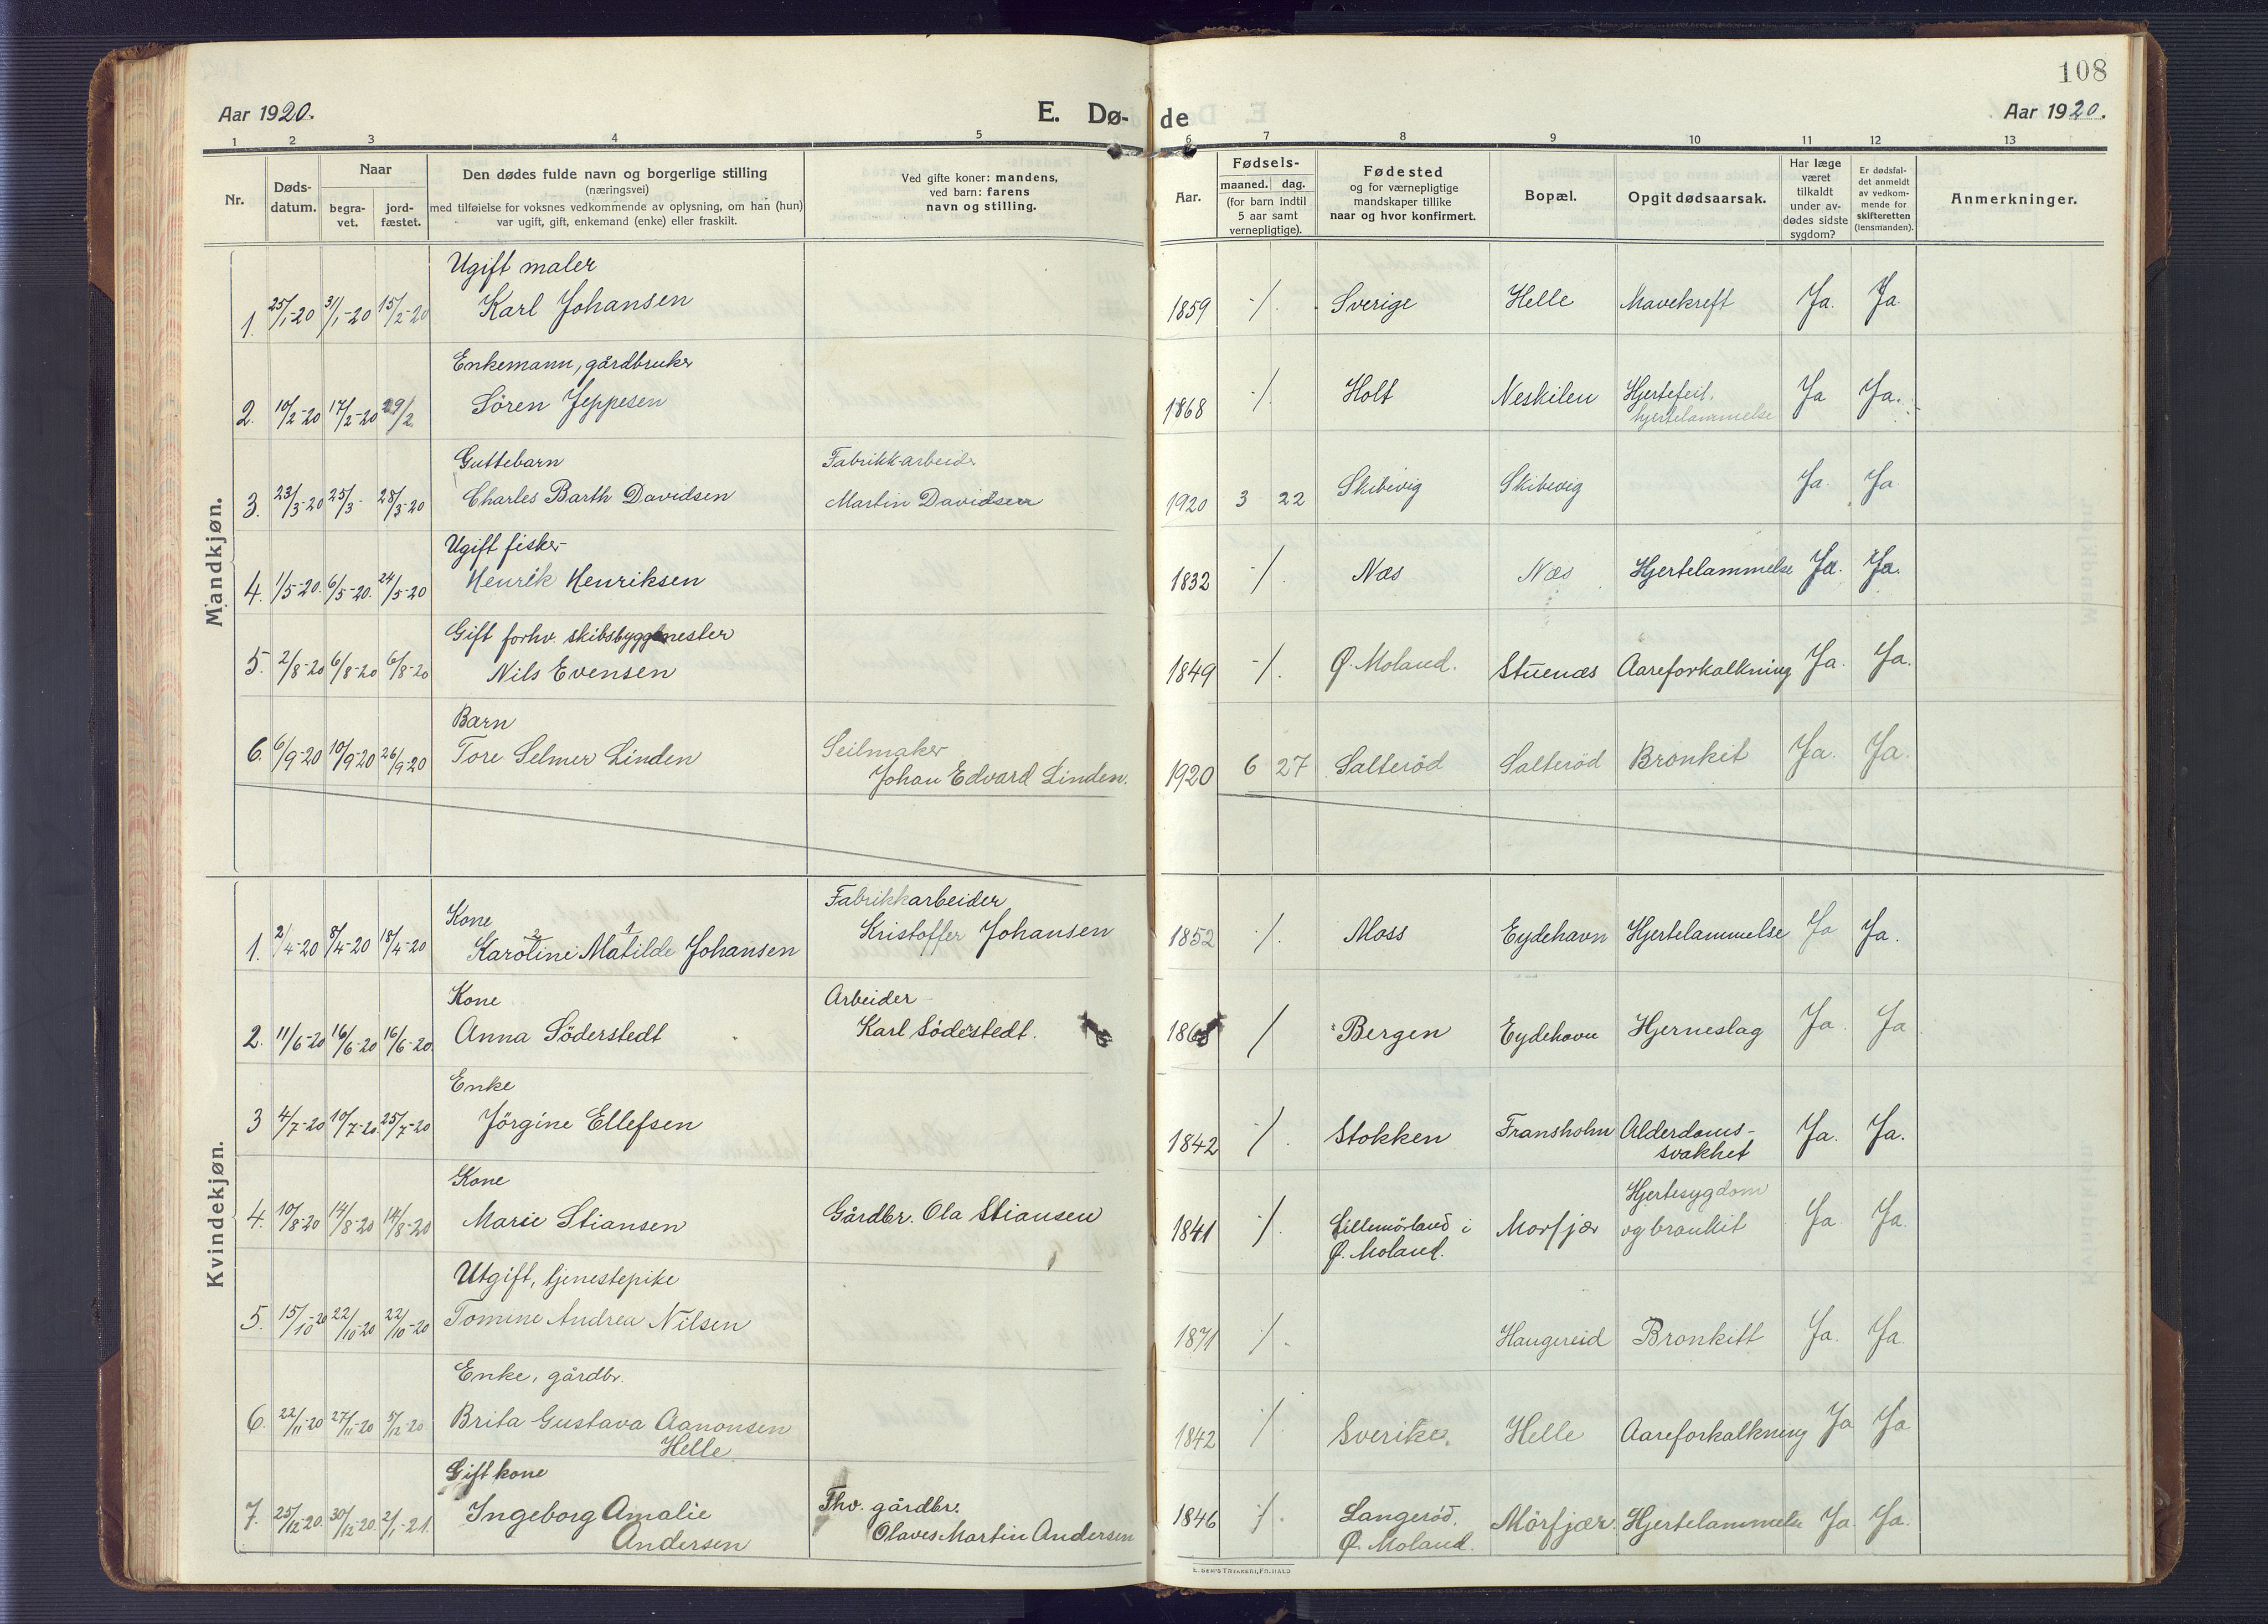 108
Aar 1920.
E. Dø-
de
Aar 1920.
1 2 3 4 5 6 7 8 9 10 11 12 13
Nr.
Døds-
datum.
Naar
begra-
vet.
jord-
fæstet.
Den dødes fulde navn og borgerlige stilling
(næringsvei)
med tilføielse for voksnes vedkommende av oplysning, om han (hun)
var ugift, gift, enkemand (enke) eller fraskilt.
Ved gifte koner: mandens,
ved barn: farens
navn og stilling.
Aar.
Fødsels-
maaned. dag.
(for barn indtil
5 aar samt
vernepligtige).
Fødested
og for værnepligtige
mandskaper tillike
naar og hvor konfirmert.
Bopæl.
Opgit dødsaarsak.
Har læge
været
tilkaldt
under av-
dødes sidste
sygdom?
Er dødsfal-
det anmeldt
av vedkom-
mende for
skifteretten
(lensmanden).
Anmerkninger.
Mandkjøn.
Ugift maler
1. 25/1-20 31/1-20 15/2-20 Karl Johansen 1859 -/. Sverige Helle Mavekreft Ja. Ja.
Enkemann, gårdbruker
2. 10/2-20 17/2-20 29/2 Sören Jeppesen 1868 -/. Holt Neskilen Hjertefeil. Ja Ja.
hjertelammelse
Guttebarn Fabrikkarbeid.
3. 23/3-20 25/3- 28/3-20 Charles Barth Davidsen Martin Davidsen 1920 3 22 Skibevig Skibevig Ja. Ja
Ugift fisker
4. 1/5-20. 6/5-20. 24/5-20 Henrik Henriksen 1832 -/. Næs Næs Hjertelammelse Ja. Ja.
Gift forhv. skibsbyggmester
5. 2/8-20 6/8-20 6/8-20 Nils Evensen 1849 -/. Ø. Moland. Stuenæs Aareforkalkning Ja. Ja.
Barn
6. 6/9-20 10/9-20 26/9-20 Tore Selmer Linden Seilmaker
Johan Edvard Linden. 1920 6 27 Salteröd Salteröd Bronkit Ja. Ja.
Kvindekjøn.
Kone Fabrikkarbeider
2 1
1. 2/4-20 8/4-20 18/4-20 Karoline Matilde Johansen Kristoffer Johansen 1852 -/. Moss Eydehavn Hjertelammelse Ja Ja.
Kone Arbeider
2. 11/6-20 16/6-20 16/6-20. Anna Söderstedt Karl Söderstedt. / Bergen Eydehavn Hjerneslag Ja. Ja
Enke
3 4/7-20 10/7-20. 25/7-20 Jörgine Ellefsen 1842 -/. Stokken Fransholm Alderdoms- Ja. Ja.
svakhet
Kone Hjertesygdom
4. 10/8-20 14/8-20 14/8-20 Marie Stiansen Gårdbr. Ola Stiansen 1841 -/. Lillemörland i Morfjær og bronkit Ja. Ja.
Ø. Moland.
Utgift, tjenestepike
5. 15/10-20 22/10-20 22/10-20 Tomine Andrea Nilsen 1871 -/. Haugereid Bronkitt Ja. Ja.
Enke, gårdbr.
6. 22/11-20 27/11-20 5/12-20 Brita Gustava Aanonsen 1842 -/. Sverike. Helle Aareforkalkning Ja Ja
Helle
Gift kone
7. 25/12-20. 30/12-20. 2/1-21. Ingeborg Amalie Fhv. gårdbr. 1846 -/. Langeröd. Mörfjær. Hjertelammelse Ja. Ja.
Andersen Olaves Martin Andersen Ø. Moland.